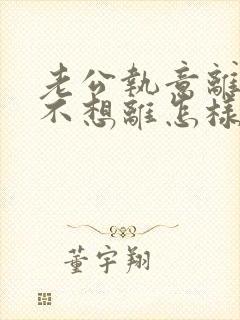 老公執意離
不想離怎樣
董宇翔